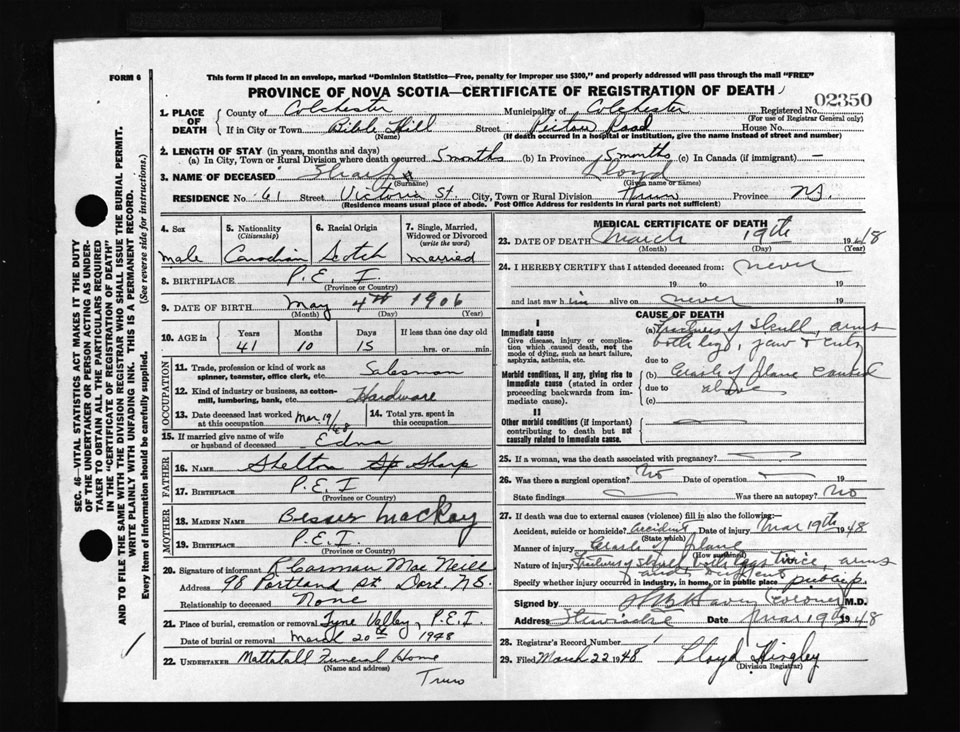 FORM 6
This form if placed in an envelope, marked "Dominion Statistics—Free, penalty for improper use $300," and properly addressed will pass through the mail "FREE"
PROVINCE OF NOVA SCOTIA—CERTIFICATE OF REGISTRATION OF DEATH
02350
1. PLACE OF DEATH
County of Colchester Municipality of Colchester Registered No.
(For use of Registrar General only)
If in City or Town Bible Hill Street Pictou Road House No.
(Name) (If death occurred in a hospital or institution, give the name instead of street and number)
2. LENGTH OF STAY (in years, months and days)
(a) In City, Town or Rural Division where death occurred 5 months (b) In Province 5 months (c) In Canada (if immigrant) —
3. NAME OF DECEASED Sharp Lloyd
(Surname) (Given name or names)
RESIDENCE No. 61 Street Victoria St. City, Town or Rural Division Truro Province N.S.
(Residence means usual place of abode. Post Office Address for residents in rural parts not sufficient)
4. Sex
male
5. Nationality
(Citizenship)
Canadian
6. Racial Origin
Scotch
7. Single, Married, Widowed or Divorced
(write the word)
married
8. BIRTHPLACE P.E.I.
(Province or Country)
9. DATE OF BIRTH May 4th 1906
(Month) (Day) (Year)
10. AGE in
Years Months Days If less than one day old
41 10 15 hrs. or min.
OCCUPATION
11. Trade, profession or kind of work as spinner, teamster, office clerk, etc. Salesman
12. Kind of industry or business, as cotton-mill, lumbering, bank, etc. Hardware
13. Date deceased last worked at this occupation Mar. 19/48
14. Total yrs. spent in this occupation
15. If married give name of wife or husband of deceased Edna
FATHER
16. NAME Shelton Sharp
17. BIRTHPLACE P.E.I.
(Province or Country)
MOTHER
18. MAIDEN NAME MacKay
19. BIRTHPLACE P.E.I.
(Province or Country)
20. Signature of informant R Carman MacNeill
Address 98 Portland St. Dart. N.S.
Relationship to deceased None
21. Place of burial, cremation or removal Tyne Valley, P.E.I.
Date of burial or removal March 20th 1948
22. UNDERTAKER Mattatall Funeral Home
(Name and address)
Truro
MEDICAL CERTIFICATE OF DEATH
23. DATE OF DEATH March 19th 1948
(Month) (Day) (Year)
24. I HEREBY CERTIFY that I attended deceased from: never
19 to 19
and last saw him alive on never 19
CAUSE OF DEATH
I
Immediate cause
Give disease, injury or complication which caused death, not the mode of dying, such as heart failure, asphyxia, asthenia, etc.
(a) Fractures of Skull, arms
both legs, jaw &
due to
Morbid conditions, if any, giving rise to immediate cause (stated in order proceeding backwards from immediate cause)
(b) Crash of plane caused
due to above
(c)
II
Other morbid conditions (if important) contributing to death but not causally related to immediate cause.
25. If a woman, was the death associated with pregnancy?
26. Was there a surgical operation? No Date of operation 19
State findings Was there an autopsy? No
27. If death was due to external causes (violence) fill in also the following:—
Accident, suicide or homicide? Accident Date of injury Mar 19th 1948
(State which)
Manner of injury Crash of plane
(How sustained)
Nature of injury Fractures of Skull both legs twice, arms
Specify whether injury occurred in industry, in home, or in public place public p.
Signed by Coroner M.D.
Address Date Mar 19th 1948
28. Registrar's Record Number 1
29. Filed March 22 1948 Lloyd Hingley
(Division Registrar)
SEC. 46—VITAL STATISTICS ACT MAKES IT THE DUTY
OF THE UNDERTAKER OR PERSON ACTING AS UNDER-
TAKER TO OBTAIN ALL THE PARTICULARS REQUIRED
IN THE "CERTIFICATE OF REGISTRATION OF DEATH"
AND TO FILE THE SAME WITH THE DIVISION REGISTRAR WHO SHALL ISSUE THE BURIAL PERMIT.
WRITE PLAINLY WITH UNFADING INK. THIS IS A PERMANENT RECORD.
Every item of information should be carefully supplied. (See reverse side for instructions.)